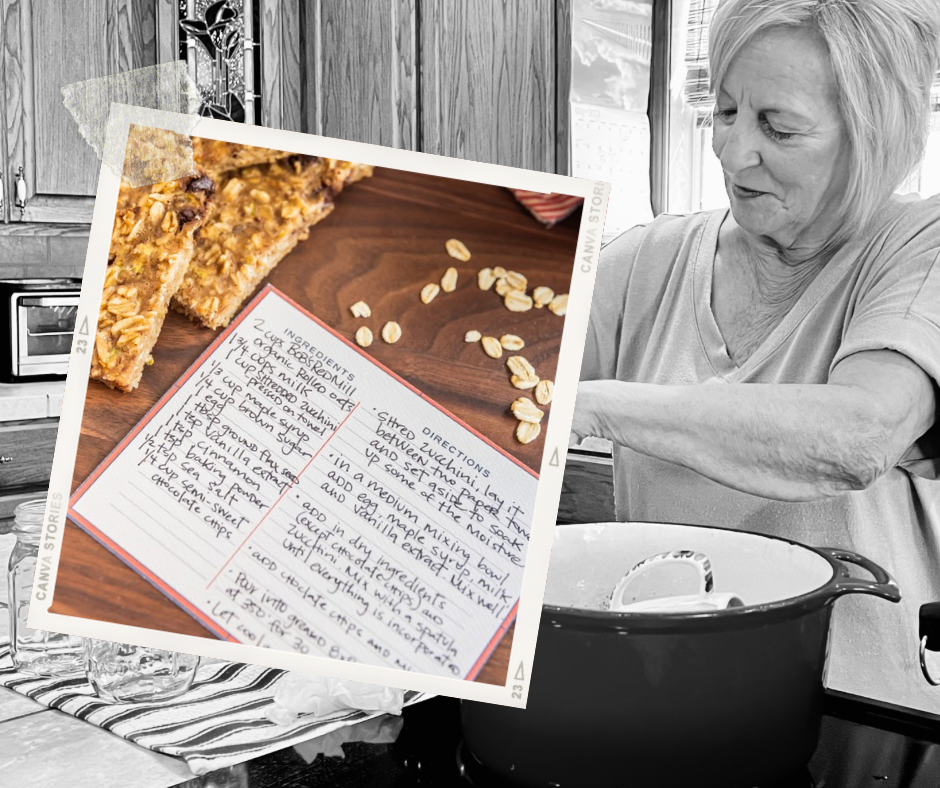 INGREDIENTS
2 cups BOB'S RED MILL
organic Rolled oats
1 3/4 cups milk
1 cup shredded zucchini
pressed on towel
1/3 cup maple syrup
1/4 cup brown sugar
1 egg
1 tbsp ground flax seed
1 tsp vanilla extract
1 tsp cinnamon
1 tsp baking powder
1/2 tsp sea salt
1/4 cup semi-sweet
chocolate chips
DIRECTIONS
· Shred zucchini, lay it
between two paper
and set aside to soak
up some of the moisture
· In a medium mixing bowl
add egg, maple syrup, milk
and vanilla extract. Mix well
· Add in dry ingredients
(except chocolate chips) and
zucchini. Mix with a spatula
until everything is incorporated
· Add chocolate chips and
· Pour into greased
at 350° for 30
· Let cool
CANVA STORIES
23
CANVA STORI
23